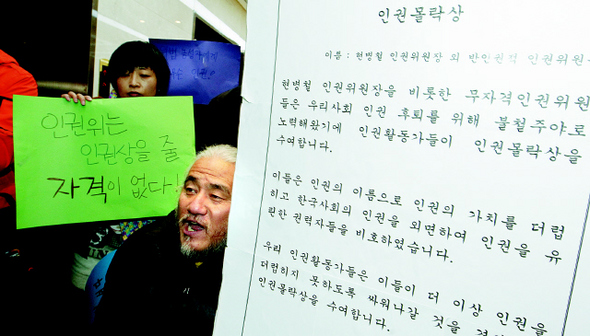 인권위는
인권상을 줄
자격이 없다!
인권몰락상
이름 : 현병철 인권위원장 외 반인권적 인권위원
현병철 인권위원장을 비롯한 무자격인권위원
들은 우리사회 인권 후퇴를 위해 불철주야로
노력해왔기에 인권활동가들이 인권몰락상을
수여합니다.
이들은 인권의 이름으로 인권의 가치를 더럽
히고 한국사회의 인권을 외면하여 인권을 유
린한 권력자들을 비호하였습니다.
우리 인권활동가들은 이들이 더 이상 인권을
더럽히지 못하도록 싸워나갈 것을
인권몰락상을 수여합니다.